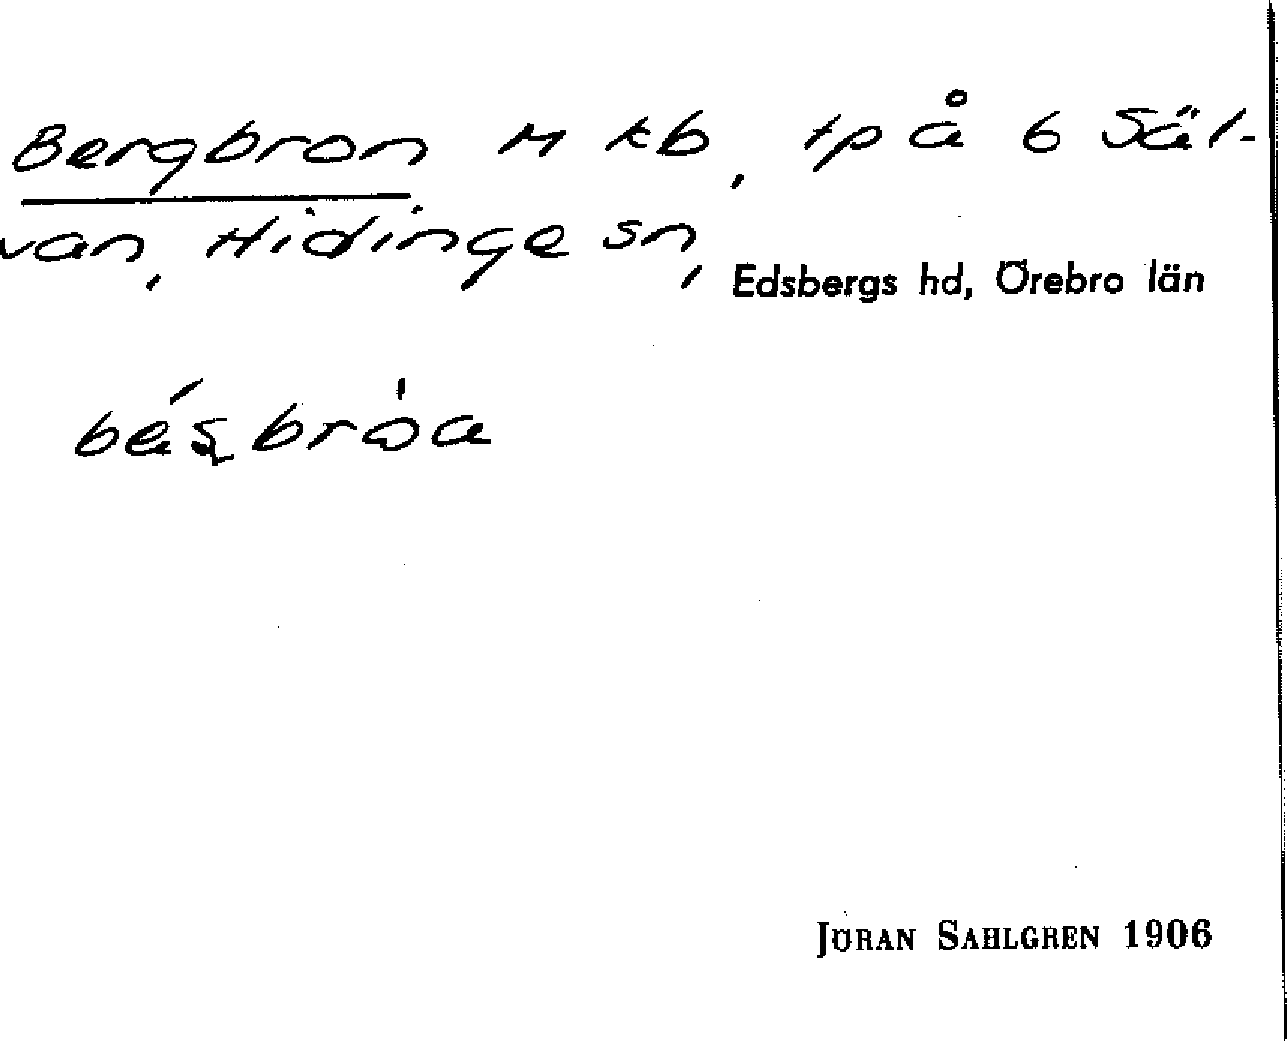 Bergbron M kb, tp å 6 Säl-
van, Hidinge sn, Edsbergs hd, Örebro län
béʂbròa
JÖRAN SAHLGREN 1906